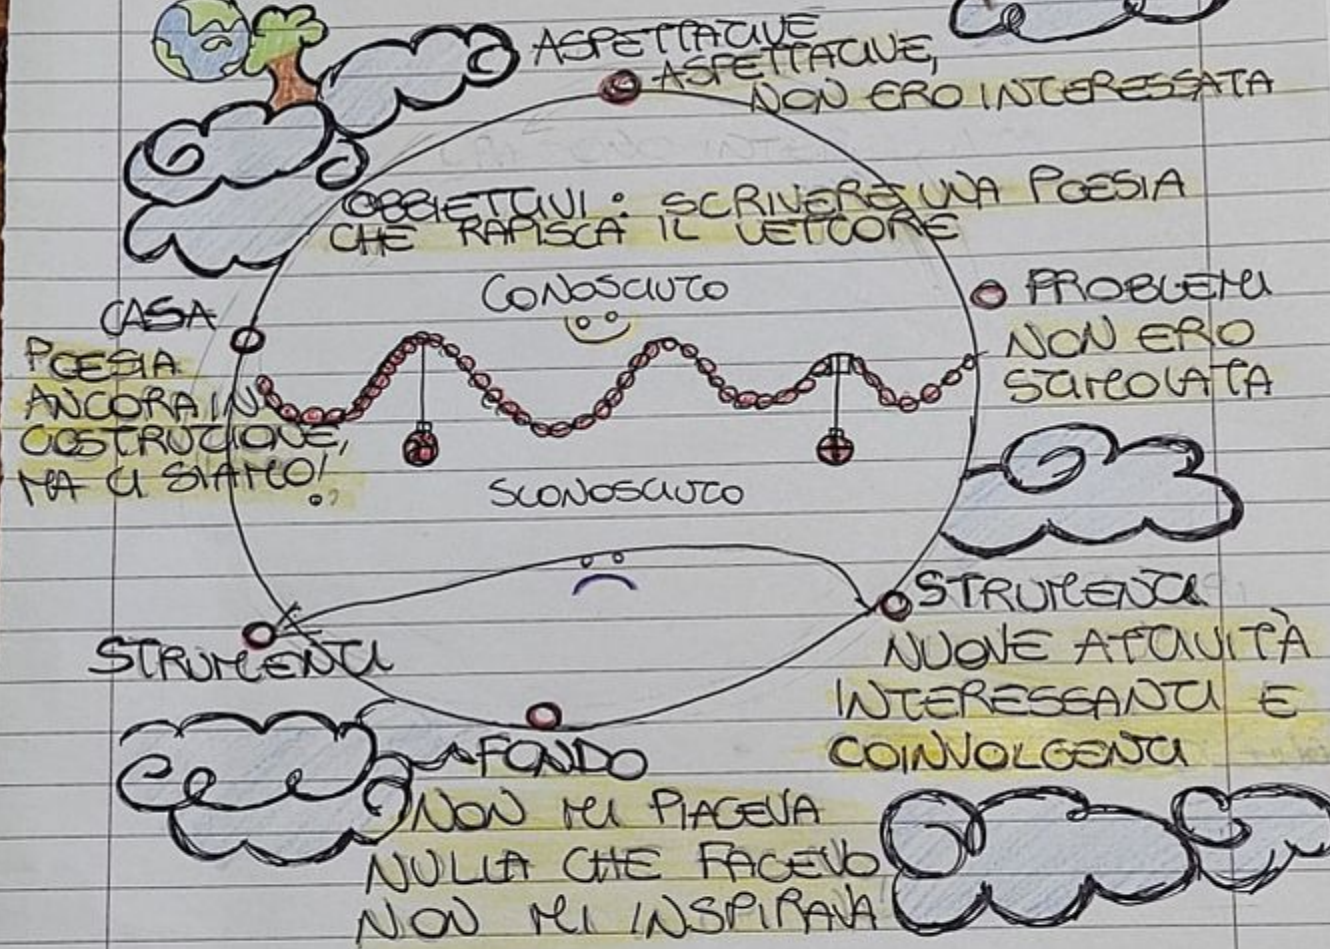 ASPETTATIVE
ASPETTATIVE,
NON ERO INTERESSATA
OBBIETTIVI: SCRIVERE UNA POESIA
CHE RAPISCA IL LETTORE
CONOSCIUTO
CASA
POESIA
ANCORA IN
COSTRUZIONE,
MA CI SIAMO!
PROBLEMI
NON ERO
STIMOLATA
SCONOSCIUTO
STRUMENTI
NUOVE ATTIVITÀ
INTERESSANTI E
COINVOLGENTI
STRUMENTI
FONDO
NON MI PIACEVA
NULLA CHE FACEVO
NON MI INSPIRAVA